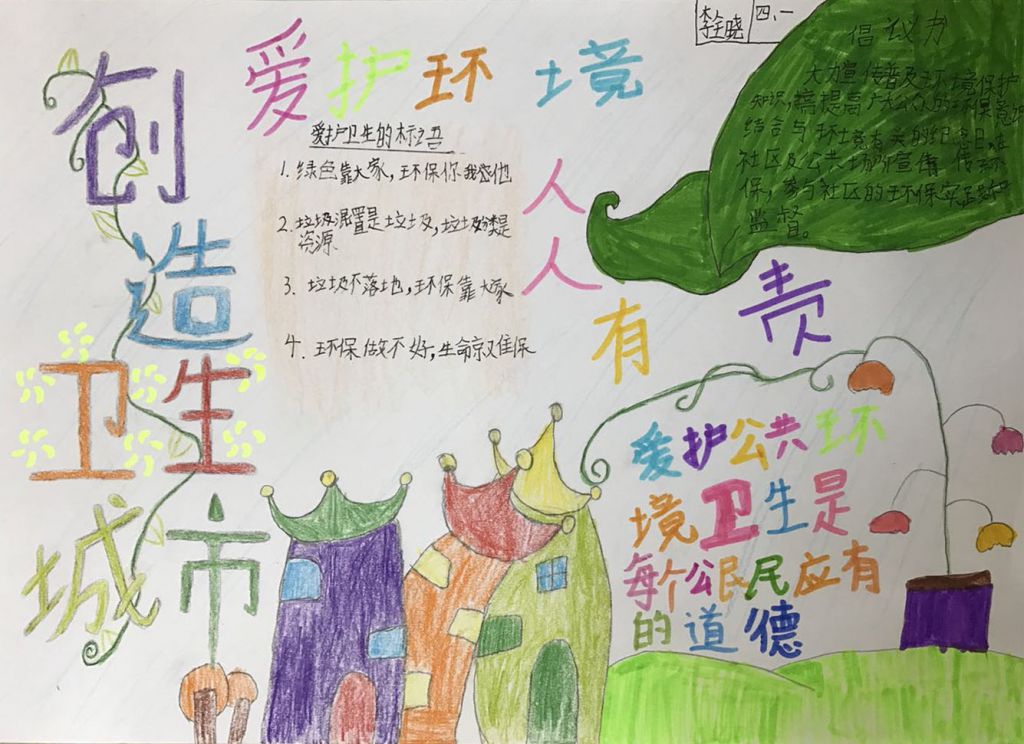 李全晓
四、一
创造卫生城市
爱护环境
人人有责
爱护卫生的标语
1. 绿色靠大家，环保你我您他
2. 垃圾混置是垃圾，垃圾分类是
资源
3. 垃圾不落地，环保靠大家
4. 环保做不好，生命京难保
倡议书
大力宣传普及环境保护
知识，提高广大公众的环保意识
结合与环境有关的纪念日，在
社区及公共场所宣传
保，参与社区的环保实践和
监督。
爱护公共环
境卫生是
每个公民民应有
的道德